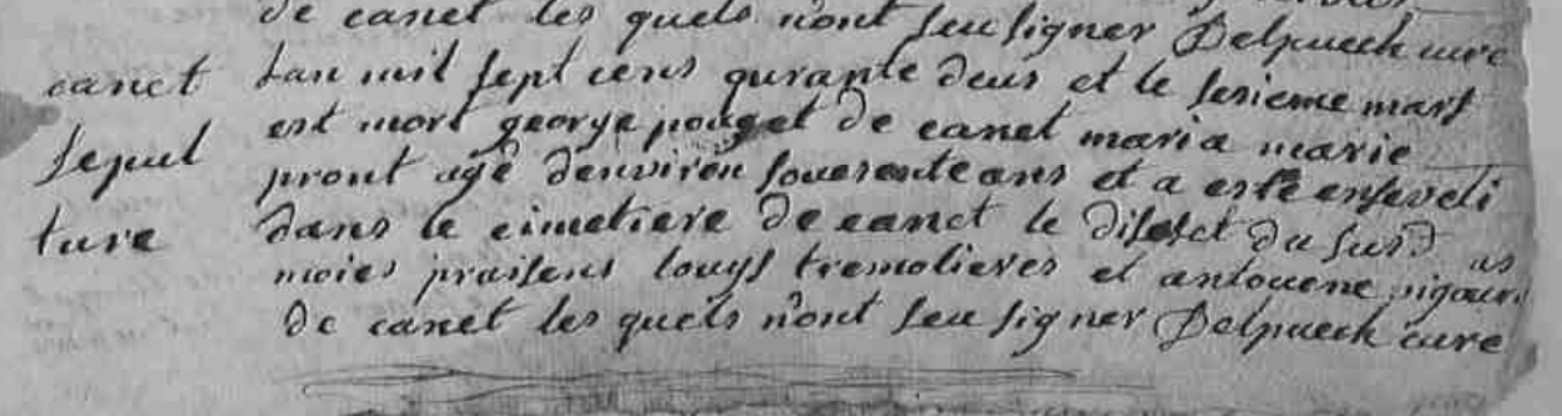 de canet les quels n'ont seu signer Delpuech cure
canet
sepul
ture
lan mil sept cens qurante deus et le sesieme mars
est mort george pouget de canet maria marie
pront agé denviron souesente ans et a este enseveli
dans le cimetiere de canet le diset du susd
moies praisens louys tremolieres et antouene
de canet les quels n'ont seu signer Delpuech cure